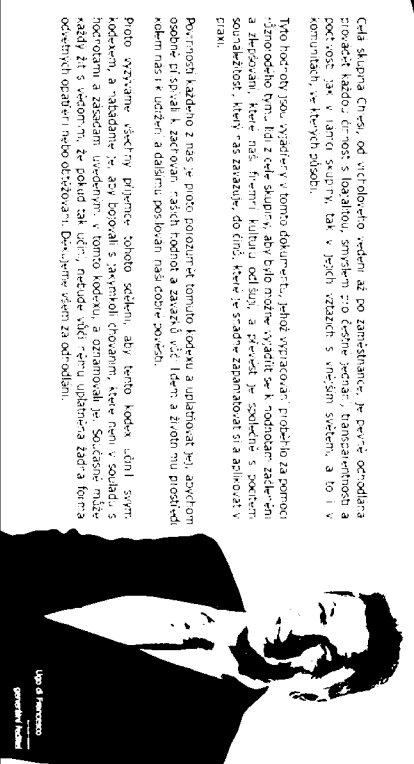 Celá skupina Chiesi, od vrcholového vedení až po zaměstnance, je pevně odhodlána
provádět každou činnost s loajalitou, smyslem pro čestné jednání, transparentností a
poctivostí jak v rámci skupiny, tak v jejích vztazích s vnějším světem, a to i v
komunitách, ve kterých působí.
Tyto hodnoty jsou vyjádřeny v tomto dokumentu, jehož vypracování proběhlo za pomoci
různorodého týmu lidí z celé skupiny, aby bylo možné vyjádřit se k hodnotám začlenění
a zlepšování, které naši firemní kulturu odlišují, a převést je společně s pocitem
sounáležitosti, který nás zavazuje, do činů, které je snadné zapamatovat si a aplikovat v
praxi.
Povinností každého z nás je proto porozumět tomuto kodexu a uplatňovat jej, abychom
osobně přispívali k zachování našich hodnot a závazků vůči lidem a životnímu prostředí
kolem nás i k udržení a dalšímu posilování naší dobré pověsti.
Proto vyzýváme všechny příjemce tohoto sdělení, aby tento kodex učinili svým
kodexem, a nabádáme je, aby bojovali s jakýmkoli chováním, které není v souladu s
hodnotami a zásadami uvedenými v tomto kodexu, a oznamovali je. Současně může
každý žít s vědomím, že pokud tak učiní, nebude vůči němu uplatněna žádná forma
odvetných opatření nebo obtěžování. Děkujeme všem za odhodlání.
Ugo di Francesco
generální ředitel